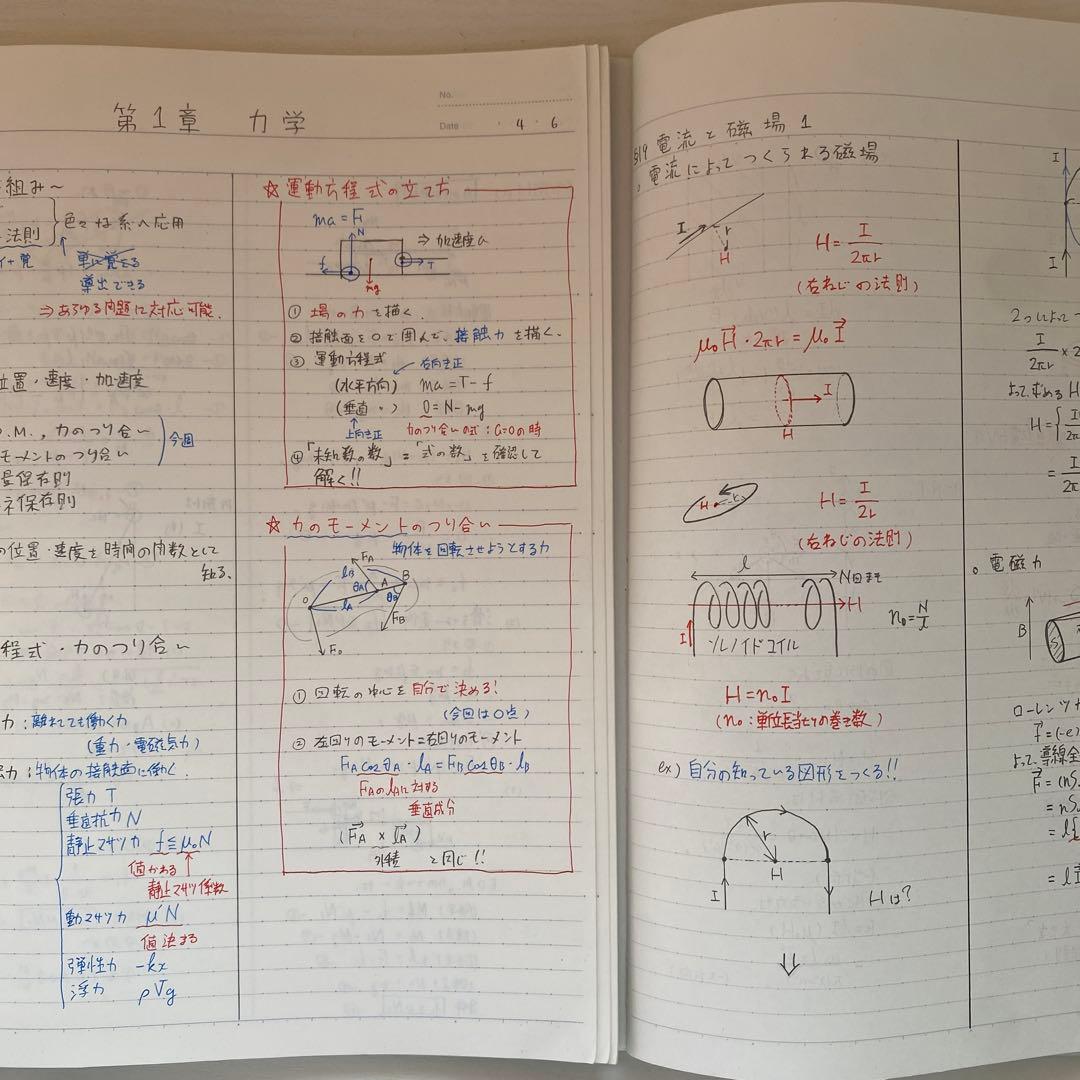 第1章 力学
No.
Date 4・6
組み〜
法則
色々な系へ応用
イ+覚
単に覚える
導出できる
⇒あらゆる問題に対応可能.
位置・速度・加速度
O.M., 力のつり合い
モーメントのつり合い
今週
量保存則
ネ保存則
の位置・速度を時間の関数として
知る.
程式・力のつり合い〜
力:離れてても働く力
(重力・電磁気力)
力:物体の接触面に働く.
張力 T
垂直抗力 N
静止マサツ力 f≦μ₀N
値かわる
静止マサツ係数
動マサツ力 μ'N
値決まる
弾性力 -kx
浮力 ρVg
☆運動方程式の立て方
ma = F
N
⇒加速度a
f
T
mg
① 場の力を描く.
② 接触面を○で囲んで、接触力を描く.
③ 運動方程式
右向き正
(水平方向) ma = T - f
(垂直 〃) 0 = N - mg
上向き正
力のつり合いの式:a=0の時
④「未知数の数」=「式の数」を確認して
解く!!
☆力のモーメントのつり合い
物体を回転させようとする力
FA
lB
θA
A
B
O
lA
θB
FB
F₀
① 回転の中心を自分で決める!
(今回はO点)
② 左回りのモーメント=右回りのモーメント
FA cosθA・lA = FB cosθB・lB
FAのlAに対する
垂直成分
(FA × lA)
外積 と同じ!!
§19 電流と磁場1
。電流によってつくられる磁場
I
r
H
H = I/2πr
(右ねじの法則)
μ₀H・2πr = μ₀I
I
H
H
r
H = I/2r
(右ねじの法則)
l
N回まき
H
I
ソレノイドコイル
n₀ = N/l
H = n₀I
(n₀:単位長当たりの巻き数)
ex) 自分の知っている図形をつくる!!
r
H
I
Hは?
⇓
I
I
2つによって
I/2πr × 2
よって求める H
H = { I/2π
= I/2π
。電磁力
B
S
ローレンツ
f = (-e)
よって、導線全
F = (nS
= nS
= l
= lI